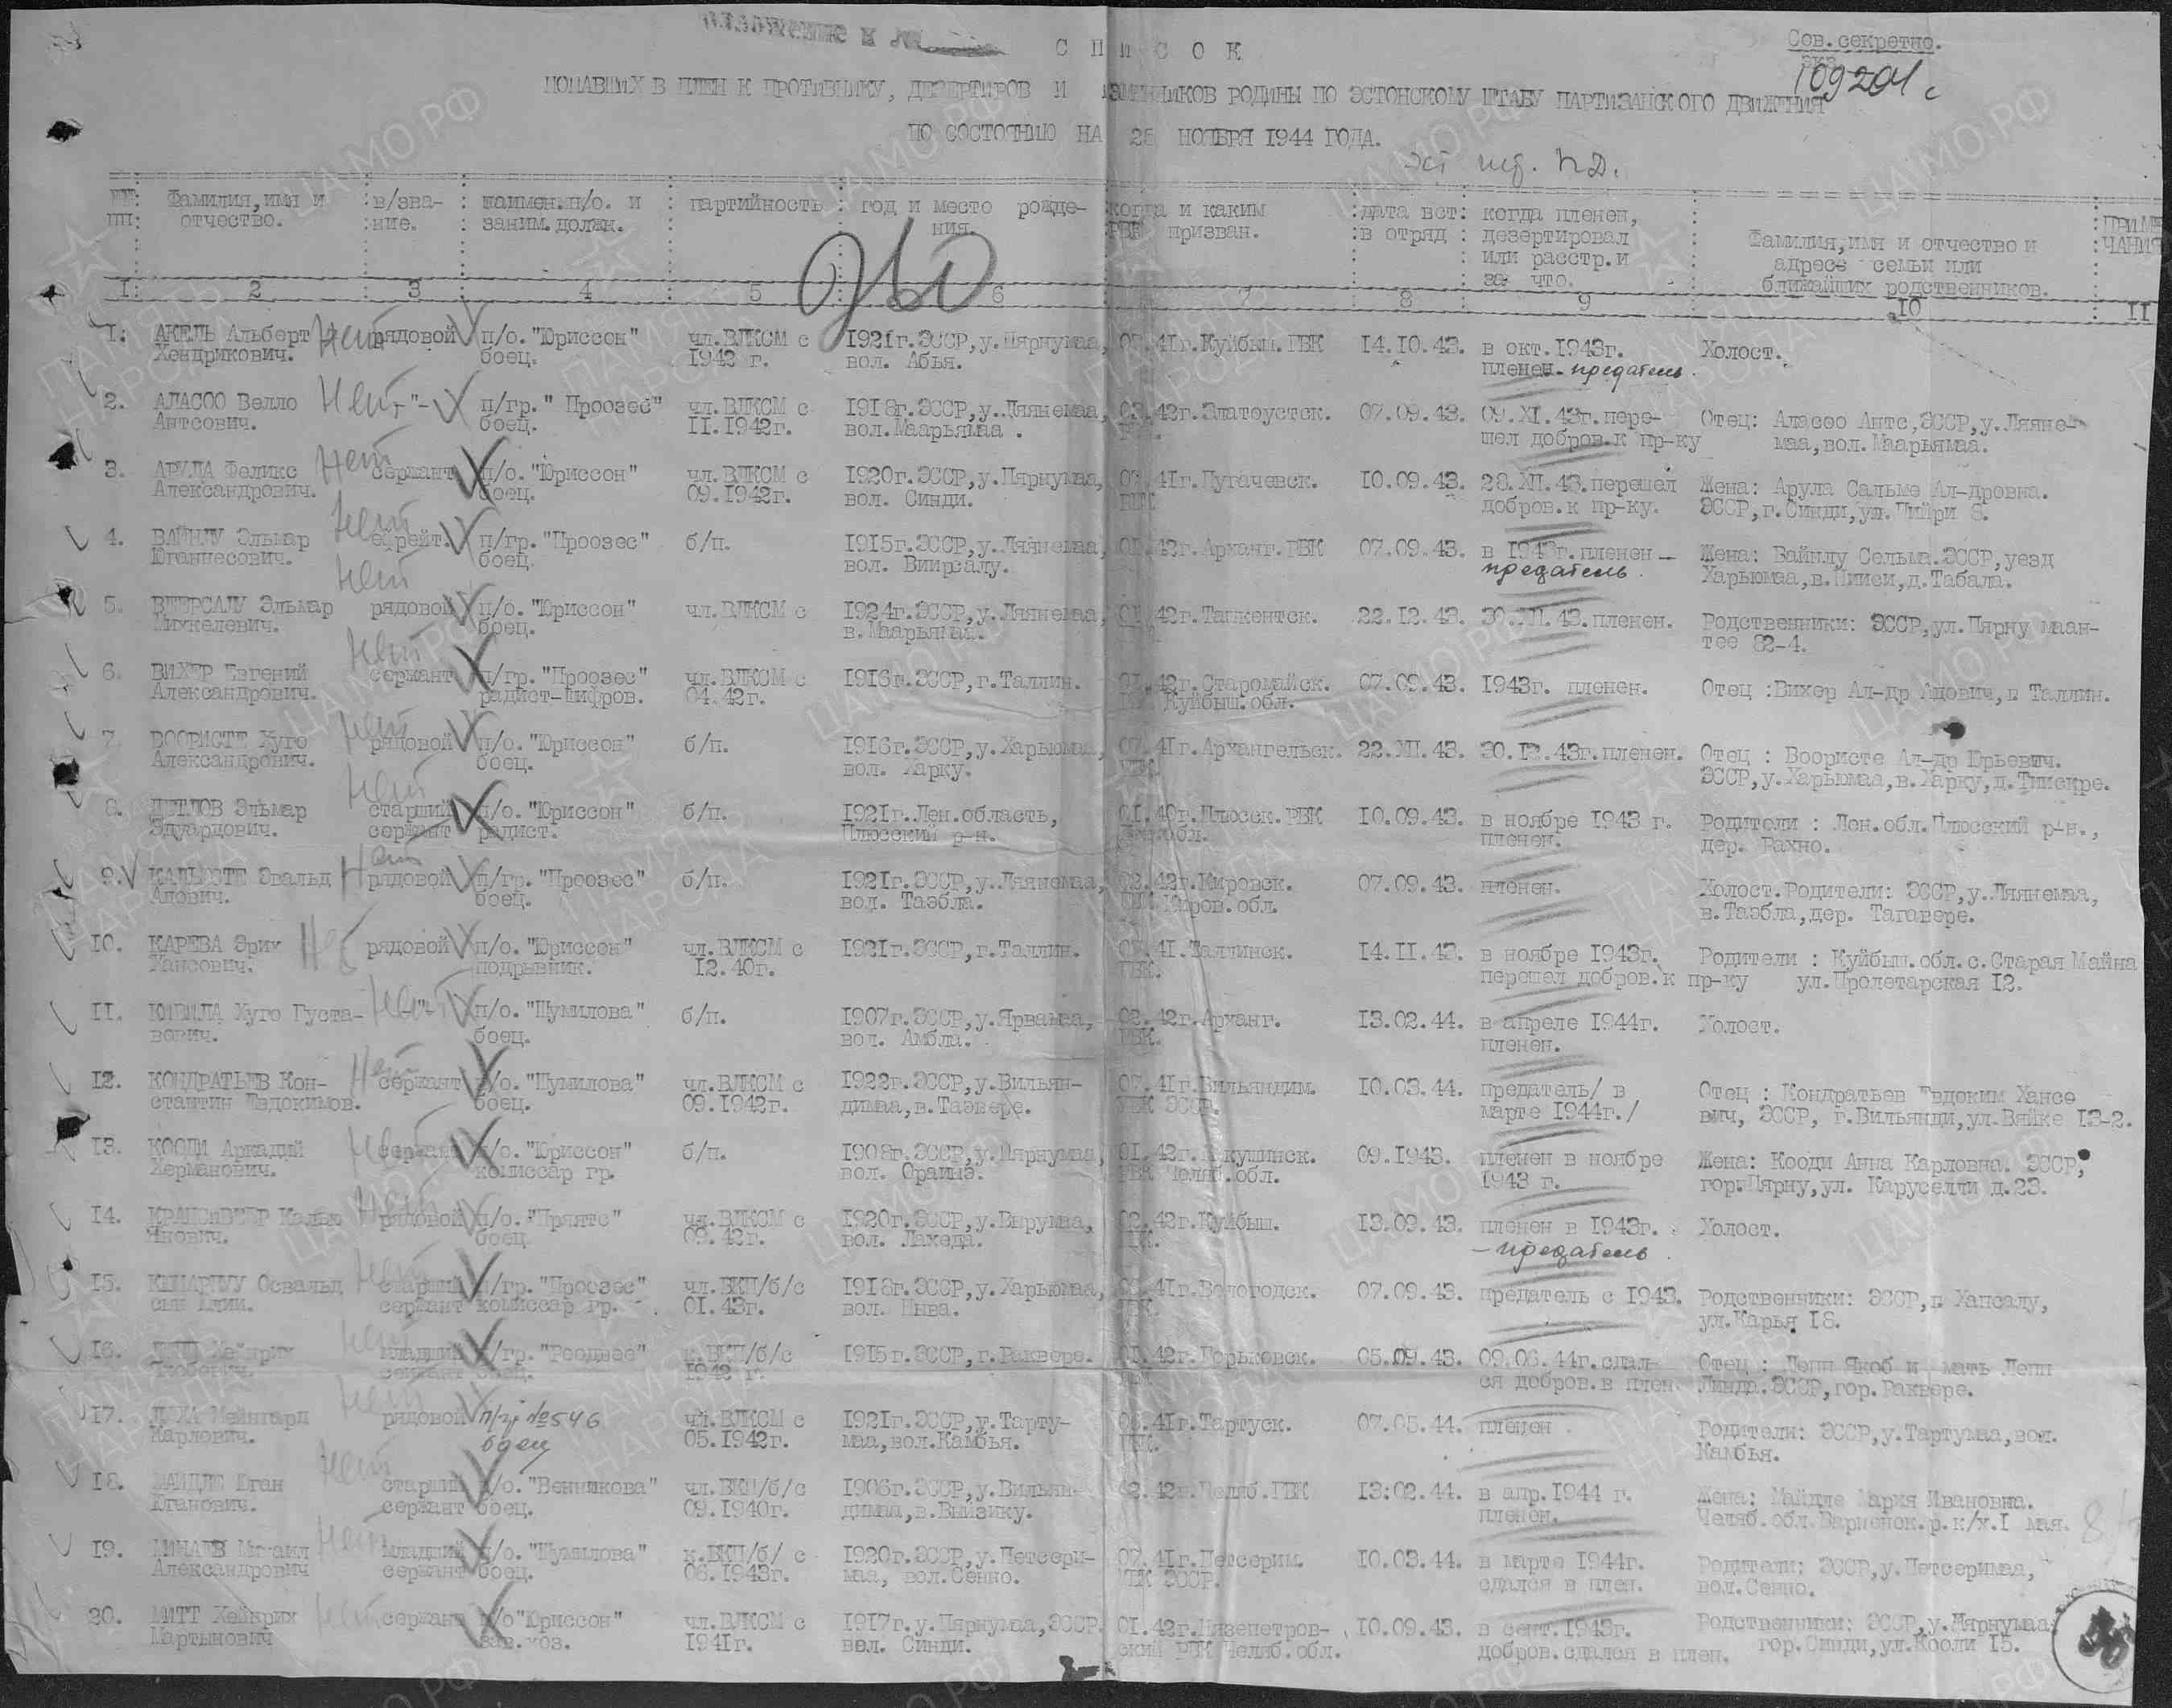 СПИСОК
Сов.секретно.
экз.
109201с
ПОПАВШИХ В ПЛЕН К ПРОТИВНИКУ, ДЕЗЕРТИРОВ И ИЗМЕННИКОВ РОДИНЫ ПО ЭСТОНСКОМУ ШТАБУ ПАРТИЗАНСКОГО ДВИЖЕНИЯ
ПО СОСТОЯНИЮ НА 25 НОЯБРЯ 1944 ГОДА.
№№ пп: Фамилия,имя и отчество. : в/звание. : наимен.п/о. и заним.должн. : партийность : год и место рождения. : когда и каким РВК призван. : дата вст. в отряд : когда пленен, дезертировал или расстр.и за что. : Фамилия,имя и отчество и адресе семьи или ближайших родственников. : ПРИМЕЧАНИЯ
1 2 3 4 5 6 7 8 9 10 11
1. АКЕЛЬ Альберт Нет рядовой п/о. "Юриссон" чл.ВЛКСМ с 1921г.ЭССР,у.Пярнумаа, 07.41г.Куйбыш.ГВК 14.10.43. в окт.1943г. Холост.
Хендрикович. боец. 1942 г. вол. Абья. пленен- предатель.
2. АЛАСОО Велло Нет -"- п/гр." Проозес" чл.ВЛКСМ с 1918г.ЭССР,у.Ляянемаа, 03.42г.Златоустск. 07.09.43. 09.XI.43г.пере- Отец: Аласоо Антс,ЭССР,у.Ляяне-
Антсович. боец. II.1942г. вол.Маарьямаа . шел добров.к пр-ку маа,вол. Маарьямаа.
3. АРУЛА Феликс Нет сержант п/о. "Юриссон" чл.ВЛКСМ с 1920г.ЭССР,у.Пярнумаа, 07.41г.Пугачевск. 10.09.43. 28.XII.43.перешел Жена: Арула Сальме Ал-дровна.
Александрович. боец. 09.1942г. вол. Синди. РВК добров.к пр-ку. ЭССР,г.Синди,ул.Пийри 8.
4. ВАЙНЛУ Эльмар Нет ефрейт. п/гр. "Проозес" б/п. 1915г.ЭССР,у.Ляянемаа, 01.42г.Арханг.РВК 07.09.43. в 1943г.пленен - Жена: Вайнлу Сельма.ЭССР,уезд
Юганнесович. боец. вол. Виирсалу. предатель. Харьюмаа,в.Нисси,д.Табала.
5. ВЕТЕРСАЛУ Эльмар Нет рядовой п/о. "Юриссон" чл.ВЛКСМ с 1924г.ЭССР,у.Ляянемаа, 01.42г.Ташкентск. 22.12.43. 30.XII.43.пленен. Родственники: ЭССР,ул.Пярну маан-
Михкелевич. боец. в.Маарьямаа. тее 82-4.
6. ВИХЕР Евгений Нет сержант п/гр. "Проозес" чл.ВЛКСМ с 1916г.ЭССР,г.Таллин. 01.42г.Старомайск. 07.09.43. 1943г. пленен. Отец :Вихер Ал-др Адович,г. Таллин.
Александрович. радист-шифров. 04.42г. Куйбыш.обл.
7. ВООРИСТЕ Хуго Нет рядовой п/о. "Юриссон" б/п. 1916г.ЭССР,у.Харьюмаа, 07.41г.Архангельск. 22.XII.43. 30.12.43г.пленен. Отец : Воористе Ал-др Юрьевич.
Александрович. боец. вол. Харку. РВК. ЭССР,у.Харьюмаа,в.Харку,д.Тиискре.
8. ДЕТЛОВ Эльмар Нет старший п/о. "Юриссон" б/п. 1921г.Лен.область, 01.40г.Плюсск.РВК 10.09.43. в ноябре 1943 г. Родители : Лен.обл.Плюсский р-н.,
Эдуардович. сержант радист. Плюсский р-н. Лен.обл. пленен. дер. Рахно.
9. КАЛЬЮСТЕ Эвальд Нет рядовой п/гр. "Проозес" б/п. 1921г.ЭССР,у.Ляянемаа, 02.42г.Кировск. 07.09.43. пленен. Холост.Родители: ЭССР,у.Ляянемаа,
Адович. боец. вол. Таэбла. Киров.обл. в.Таэбла,дер. Таговере.
10. КАРЕВА Эрих Нет рядовой п/о. "Юриссон" чл.ВЛКСМ с 1921г.ЭССР,г.Таллин. 07.41.Таллинск. 14.11.43. в ноябре 1943г. Родители : Куйбыш.обл.с.Старая Майна
Хансович. подрывник. 12.40г. РВК. перешел добров.к пр-ку ул.Пролетарская 12.
11. КИВИЛА Хуго Густа- Нет -"- п/о. "Шумилова" б/п. 1907г.ЭССР,у.Ярвамаа, 02.42г.Арханг. 13.02.44. в апреле 1944г. Холост.
вович. боец. вол. Амбла. РВК. пленен.
12. КОНДРАТЬЕВ Кон- Нет сержант п/о. "Шумилова" чл.ВЛКСМ с 1922г.ЭССР,у.Вильян- 07.41г.Вильяндим. 10.03.44. предатель/ в Отец : Кондратьев Евдоким Хансо
стантин Евдокимов. боец. 09.1942г. димаа,в.Таэвере. УВК ЭССР. марте 1944г./ вич, ЭССР, г.Вильянди,ул.Вяйке 13-2.
13. КООДИ Аркадий Нет сержант п/о. "Юриссон" б/п. 1908г.ЭССР,у.Пярнумаа, 01.42г. 09.1943. пленен в ноябре Жена: Кооди Анна Карловна. ЭССР,
Херманович. комиссар гр. вол. Ораиыэ. РВК Челяб.обл. 1943 г. гор.Пярну,ул. Каруселли д.23.
14. Калью Нет рядовой п/о. "Прятс" чл.ВЛКСМ с 1920г.ЭССР,у.Вирумаа, 02.42г.Куйбыш. 13.09.43. пленен в 1943г. Холост.
Янович. боец. 09.42г. вол. Лахеда. - предатель.
15. Освальд Нет старший п/гр. "Проозес" чл.ВКП/б/с 1918г.ЭССР,у.Харьюмаа, 08.41г.Вологодск. 07.09.43. предатель с 1943. Родственники: ЭССР,г. Хапсалу,
сын сержант комиссар гр. 01.43г. вол. Ныва. РВК. ул.Карья 18.
16. ЛЕПП Хейнрих Нет младший п/гр. к.ВКП/б/с 1915г.ЭССР,г.Раквере. 01.42г.Горьковск. 05.09.43. 09.06.44г.сдал- Отец : Лепп Якоб и мать Лепп
Якобович. сержант боец. 1942 г. ся добров.в плен Линда.ЭССР,гор.Раквере.
17. Мейнгард Нет рядовой п/гр №546 чл.ВЛКСМ с 1921г.ЭССР,у.Тарту- 08.41г.Тартуск. 07.05.44. пленен . Родители: ЭССР,у.Тартумаа,вол.
Карлович. боец 05.1942г. маа,вол.Камбья. Камбья.
18. МАЙДЛЕ Юган Нет старший п/о. "Венникова" чл.ВКП/б/с 1906г.ЭССР,у.Вильян- 02.42г.Челяб.ГВК 13:02.44. в апр.1944 г. Жена: Майдле Мария Ивановна.
Юганович. сержант боец. 09.1940г. димаа,в.Выйзику. пленен. Челяб.обл.Варненск.р.к/х.1 мая.
19. МИНАЕВ Михаил Нет младший п/о. "Шумилова" к.ВКП/б/ с 1920г.ЭССР,у.Петсери- 07.41г.Петсерим. 10.03.44. в марте 1944г. Родители: ЭССР,у.Петсеримаа,
Александрович сержант боец. 06.1943г. маа, вол.Сенно. УВК ЭССР. сдался в плен. вол.Сенно.
20. МИТТ Хейнрих Нет сержант п/о"Юриссон" чл.ВЛКСМ с 1917г.у.Пярнумаа,ЭССР. 01.42г.Нязепетров- 10.09.43. в сент.1943г. Родственники: ЭССР,у.Пярнумаа
Мартынович зав.хоз. 1941г. вол. Синди. ский РВК Челяб.обл. добров.сдался в плен. гор.Синди,ул.Кооли 15.